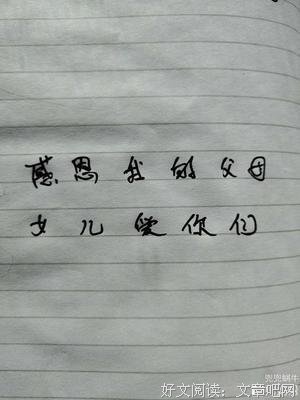 感恩我的父母
女儿爱你们
兜兜蜗牛
好文阅读：文章吧网